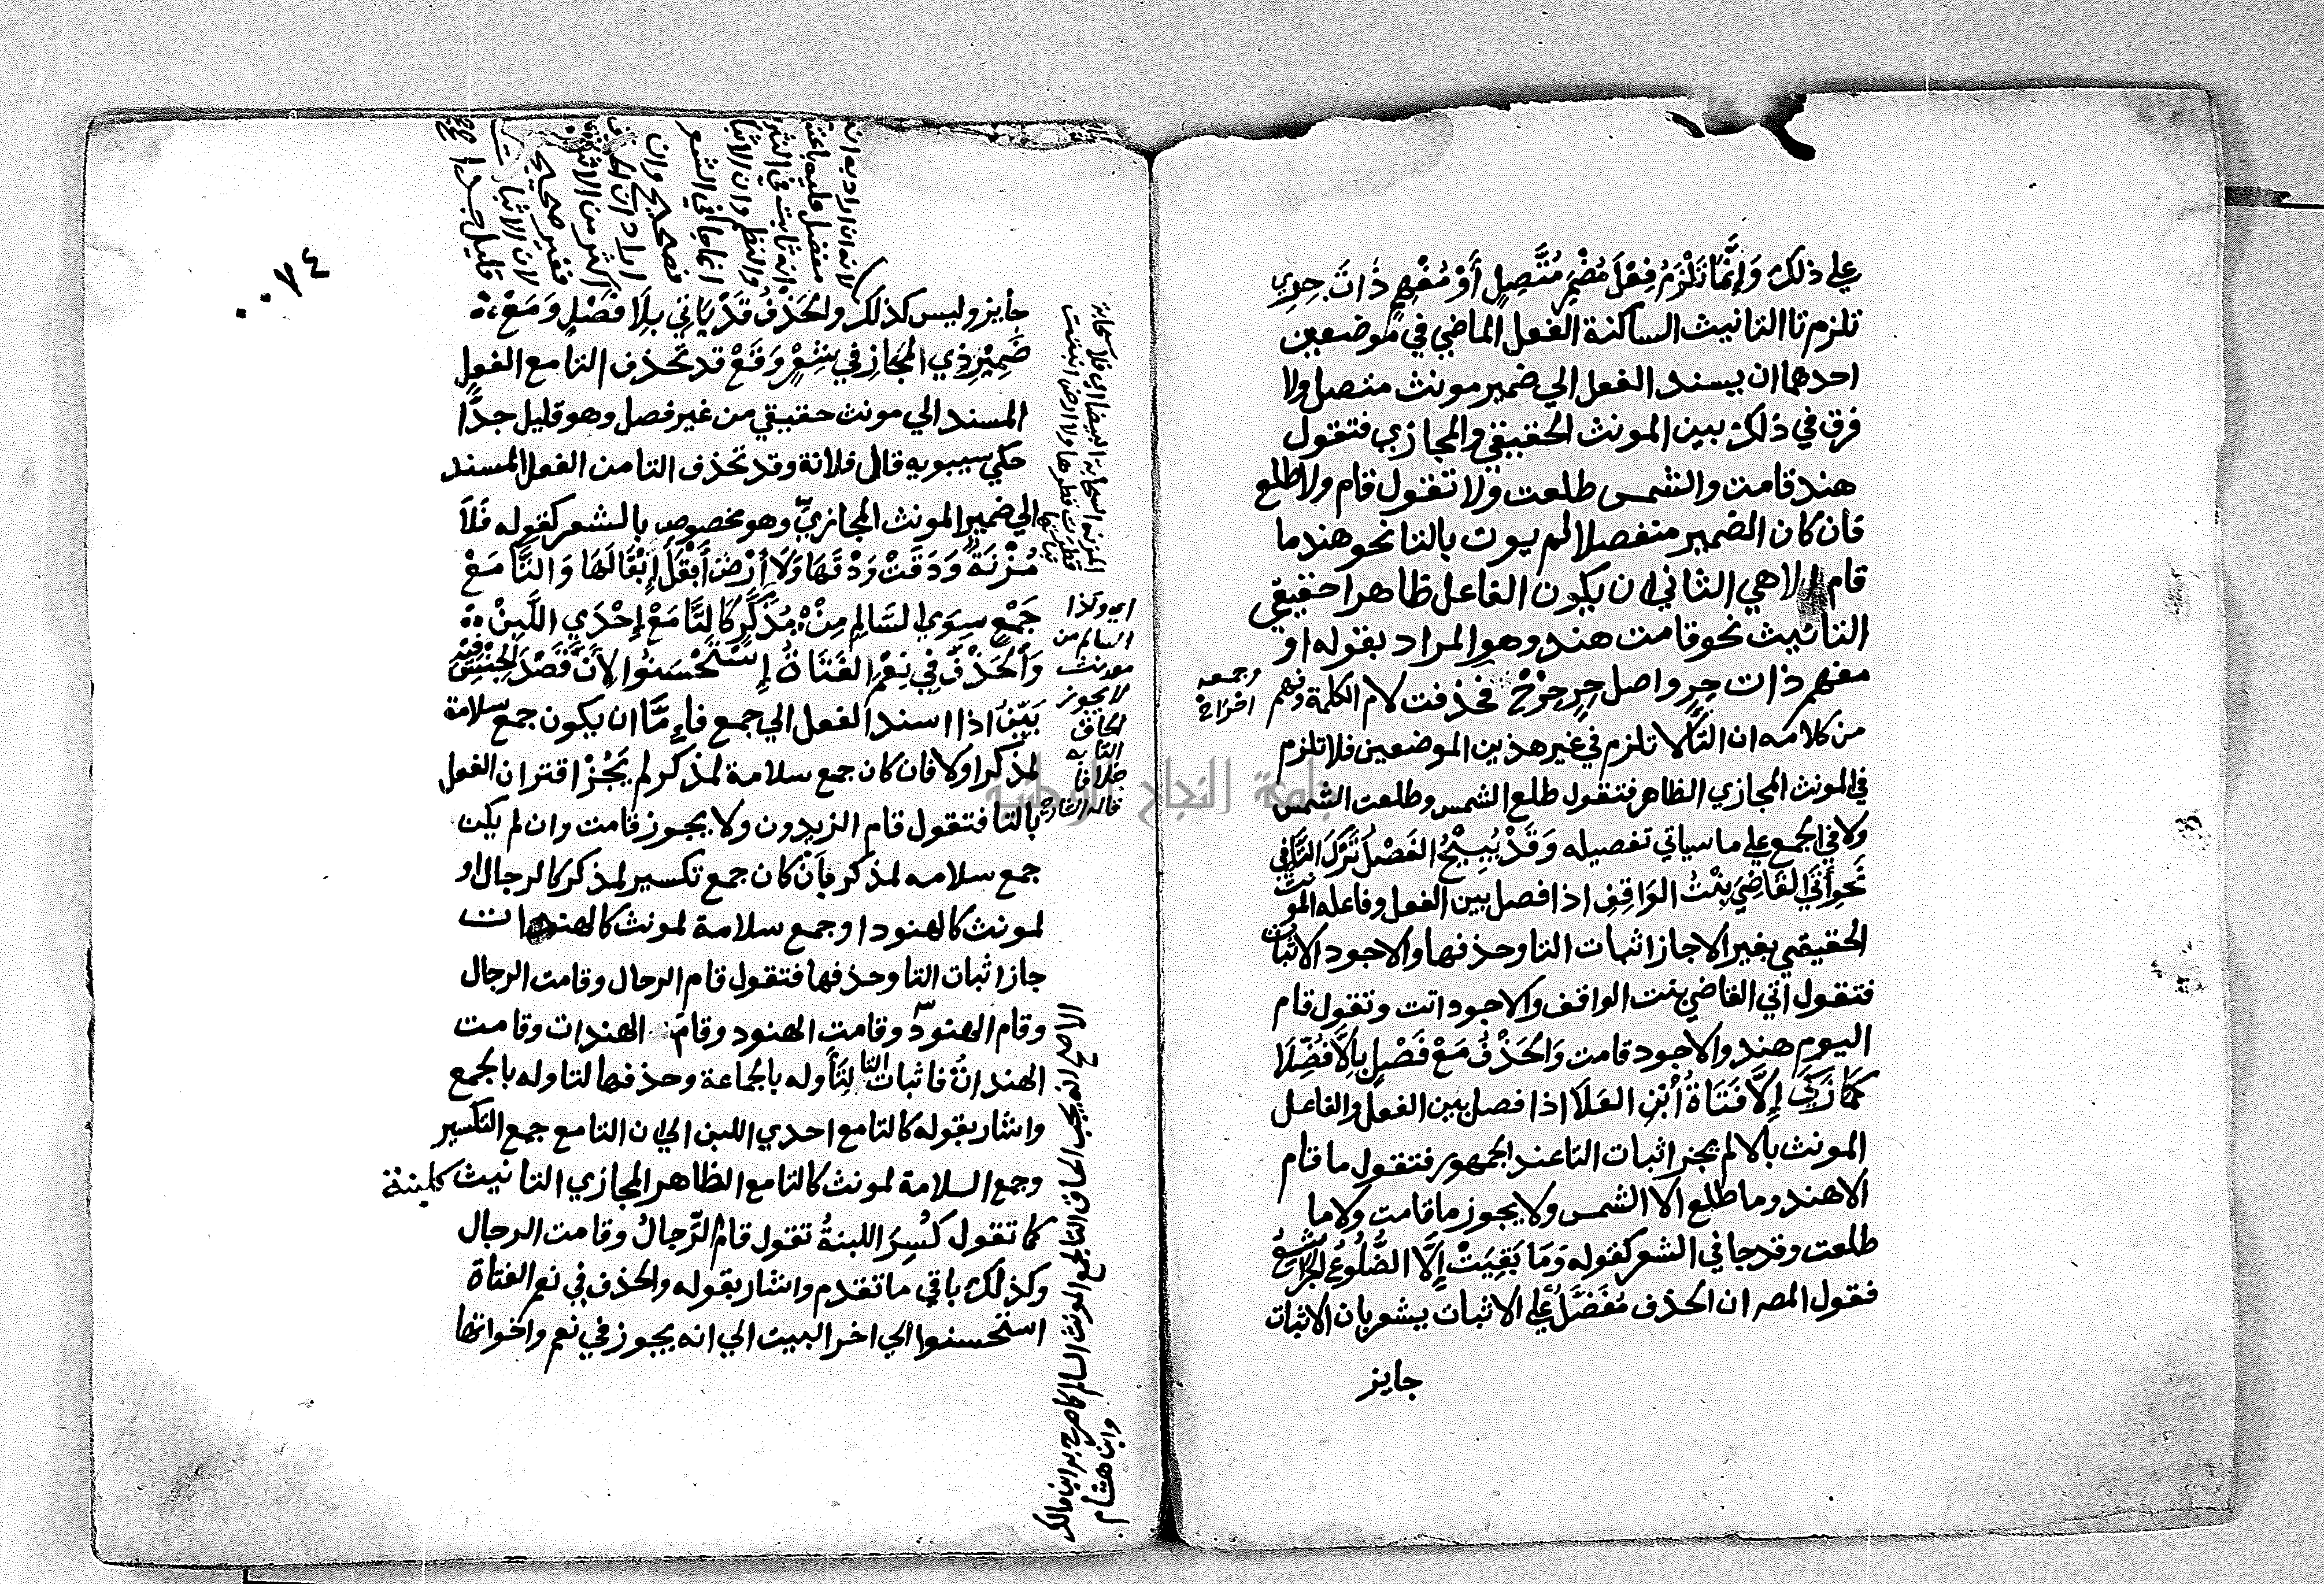 علي ذلك وَإِنَّمَا تَلْزَمُ فِعْلَ مُضْمَرٍ مُتَّصِلٍ أَوْ مُفْهِمٍ ذَاتَ حِرِي
تلزم تا التانيث الساكنة الفعل الماضي في موضعين
احدهما ان يسند الفعل الي ضمير مونث متصل ولا
فرق في ذلك بين المونث الحقيقي والمجازي فتقول
هند قامت والشمس طلعت ولا تقول قام ولا طلع
فان كان الضمير منفصلا لم يوت بالتا نحو هند ما
قام الاهي الثاني ان يكون الفاعل ظاهرا حقيقي
التانيث نحو قامت هند وهو المراد بقوله او
مفهم ذات حِرٍ واصل حِرٍ حِرْحٌ فحذفت لام الكلمة وفهم
وجمعه
احراح
من كلامه ان التا لا تلزم في غير هذين الموضعين فلا تلزم
في المونث المجازي الظاهر فتقول طلع الشمس وطلعت الشمس
ولا في الجمع علي ما سياتي تفصيله وَقَدْ يُبِيْحُ الفَصْلُ تَرْكَ التَّا فِي
نَحْوِ أَتَي القَاضِيَ بِنْتُ الوَاقِفِ اذا فصل بين الفعل وفاعله المونث
الحقيقي بغير الا جاز اثبات التا وحذفها والاجود الاثبات
فتقول اتي القاضي بنت الواقف والاجود اتت وتقول قام
اليوم هند والاجود قامت وَالحَذْفُ مَعْ فَصْلٍ بِإِلَّا فُضِّلَا
كَمَا زَكَي إِلَّا فَتَاةُ أبْنِ العَلَا اذا فصل بين الفعل والفاعل
المونث بالا لم يجز اثبات التا عند الجمهور فتقول ما قام
الا هند وما طلع الا الشمس ولا يجوز ما قامت ولا ما
طلعت وقد جا في الشعر كقوله وَمَا بَقِيَتْ إِلَّا الضُّلُوعُ الجَرَاشِعُ
فقول المص ان الحذف مُفَضَّلٌ علي الاثبات يشعر بان الاثبات
جايز
٠٠٧٤
لانه ان اراد به انه
مفضل عليه باعتبار
انه ثابت في النثر
والنظم وان الاثبا
انما جا في الشعر
فصحيح وان
اراد ان
اكثر من الاثبات
فغير صحيح
لان الاثبات
قليل جدا
جايز وليس كذلك والحَذْفُ قَدْ يَاتِي بِلَا فَصْلٍ وَمَعْ
ضَمِيْرِ ذِي المَجَازِ فِي شِعْرٍ وَقَعْ قد تحذف التا مع الفعل
المسند الي مونث حقيقي من غير فصل وهو قليل جدًّا
حكي سيبويه قال فلانة وقد تحذف التا من الفعل المسند
الي ضمير المونث المجازيّ وهو مخصوص بالشعر كقوله فَلَا
مُزْنَةٌ وَدَقَتْ وَدْقَهَا وَلَا أَرْضَ أَبْقَلَ إِبْقَالَهَا وَالتَّا مَعْ
جَمْعٍ سِوَي السَّالِمِ مِنْ مُذَكَّرٍ كَالتَّا مَعْ إِحْدَي اللَّبِنْ
وَالحَذْفَ فِي نِعْمَ الفَتَاةُ إِسْتَحْسَنُوا لِأَنَّ قَصْدَ الجِنْسِ فِيْهِ
بَيِّنُ اذا اسند الفعل الي جمع فاِمَّا ان يكون جمع سلامة
لمذكر اولا فان كان جمع سلامة لمذكر لم يَجُزْ اقتران الفعل
بالتا فتقول قام الزيدون ولا يجوز قامت وان لم يكن
جمع سلامه لمذكر بِاَنْ كان جمع تكسير لمذكر كالرجال او
لمونث كالهنود او جمع سلامة لمونث كالهندات
جاز اثبات التا وحذفها فتقول قام الرجال وقامت الرجال
وقام الهنود وقامت الهنود وقام الهندات وقامت
الهندات فاثبات التا لِتَأَوله بالجماعة وحذفها لتاوله بالجمع
واشار بقوله كالتا مع احدي اللبن الي ان التا مع جمع التكسير
وجمع السلامة لمونث كالتا مع الظاهر المجازي التانيث كلبنة
كما تقول كُسِرَ اللبنةُ تقول قامَ الرِّجالُ وقامت الرجال
وكذلك باقي ما تقدم واشار بقوله والحذف في نعم الفتاة
استحسنوا الي اخر البيت الي انه يجوز في نعم واخواتها
اي وكذا
السالم من
مونث
لا يجوز
الحاق
التا به
خلافا